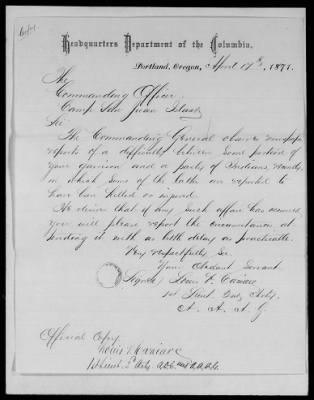 Copy.
Headquarters Department of the Columbia.
Portland, Oregon, April 17th, 1871.
The
Commanding Officer
Camp San Juan Island
Sir
The Commanding General observes newspaper
reports of a difficulty between some portion of
your garrison and a party of Indians, recently,
in which some of the latter are reported to
have been killed or injured.
He desires that if any such affair has occurred
you will please report the circumstances at
sending it with as little delay as practicable.
Very respectfully Sir
Your Obedient Servant
Signed Louis V. Caziarc
1st Lieut. 2nd Arty.
A. A. A. G
Official Copy
Louis V. Caziarc
1st Lieut. 2d Arty. A.D.C. and A.A.A.G.